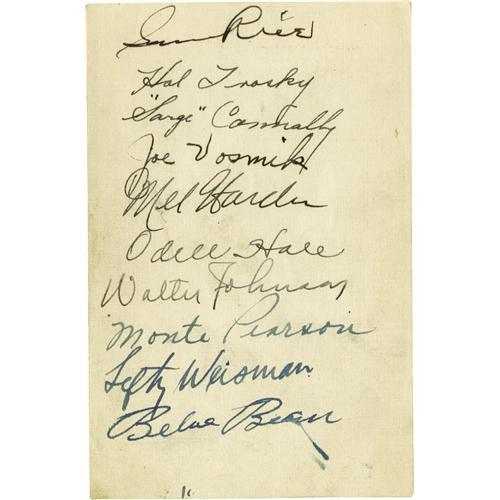 Sam Rice
Hal Trosky
"Sarge" Connally
Joe Vosmik
Mel Harder
Odell Hale
Walter Johnson
Monte Pearson
Lefty Weisman
Belve Bean